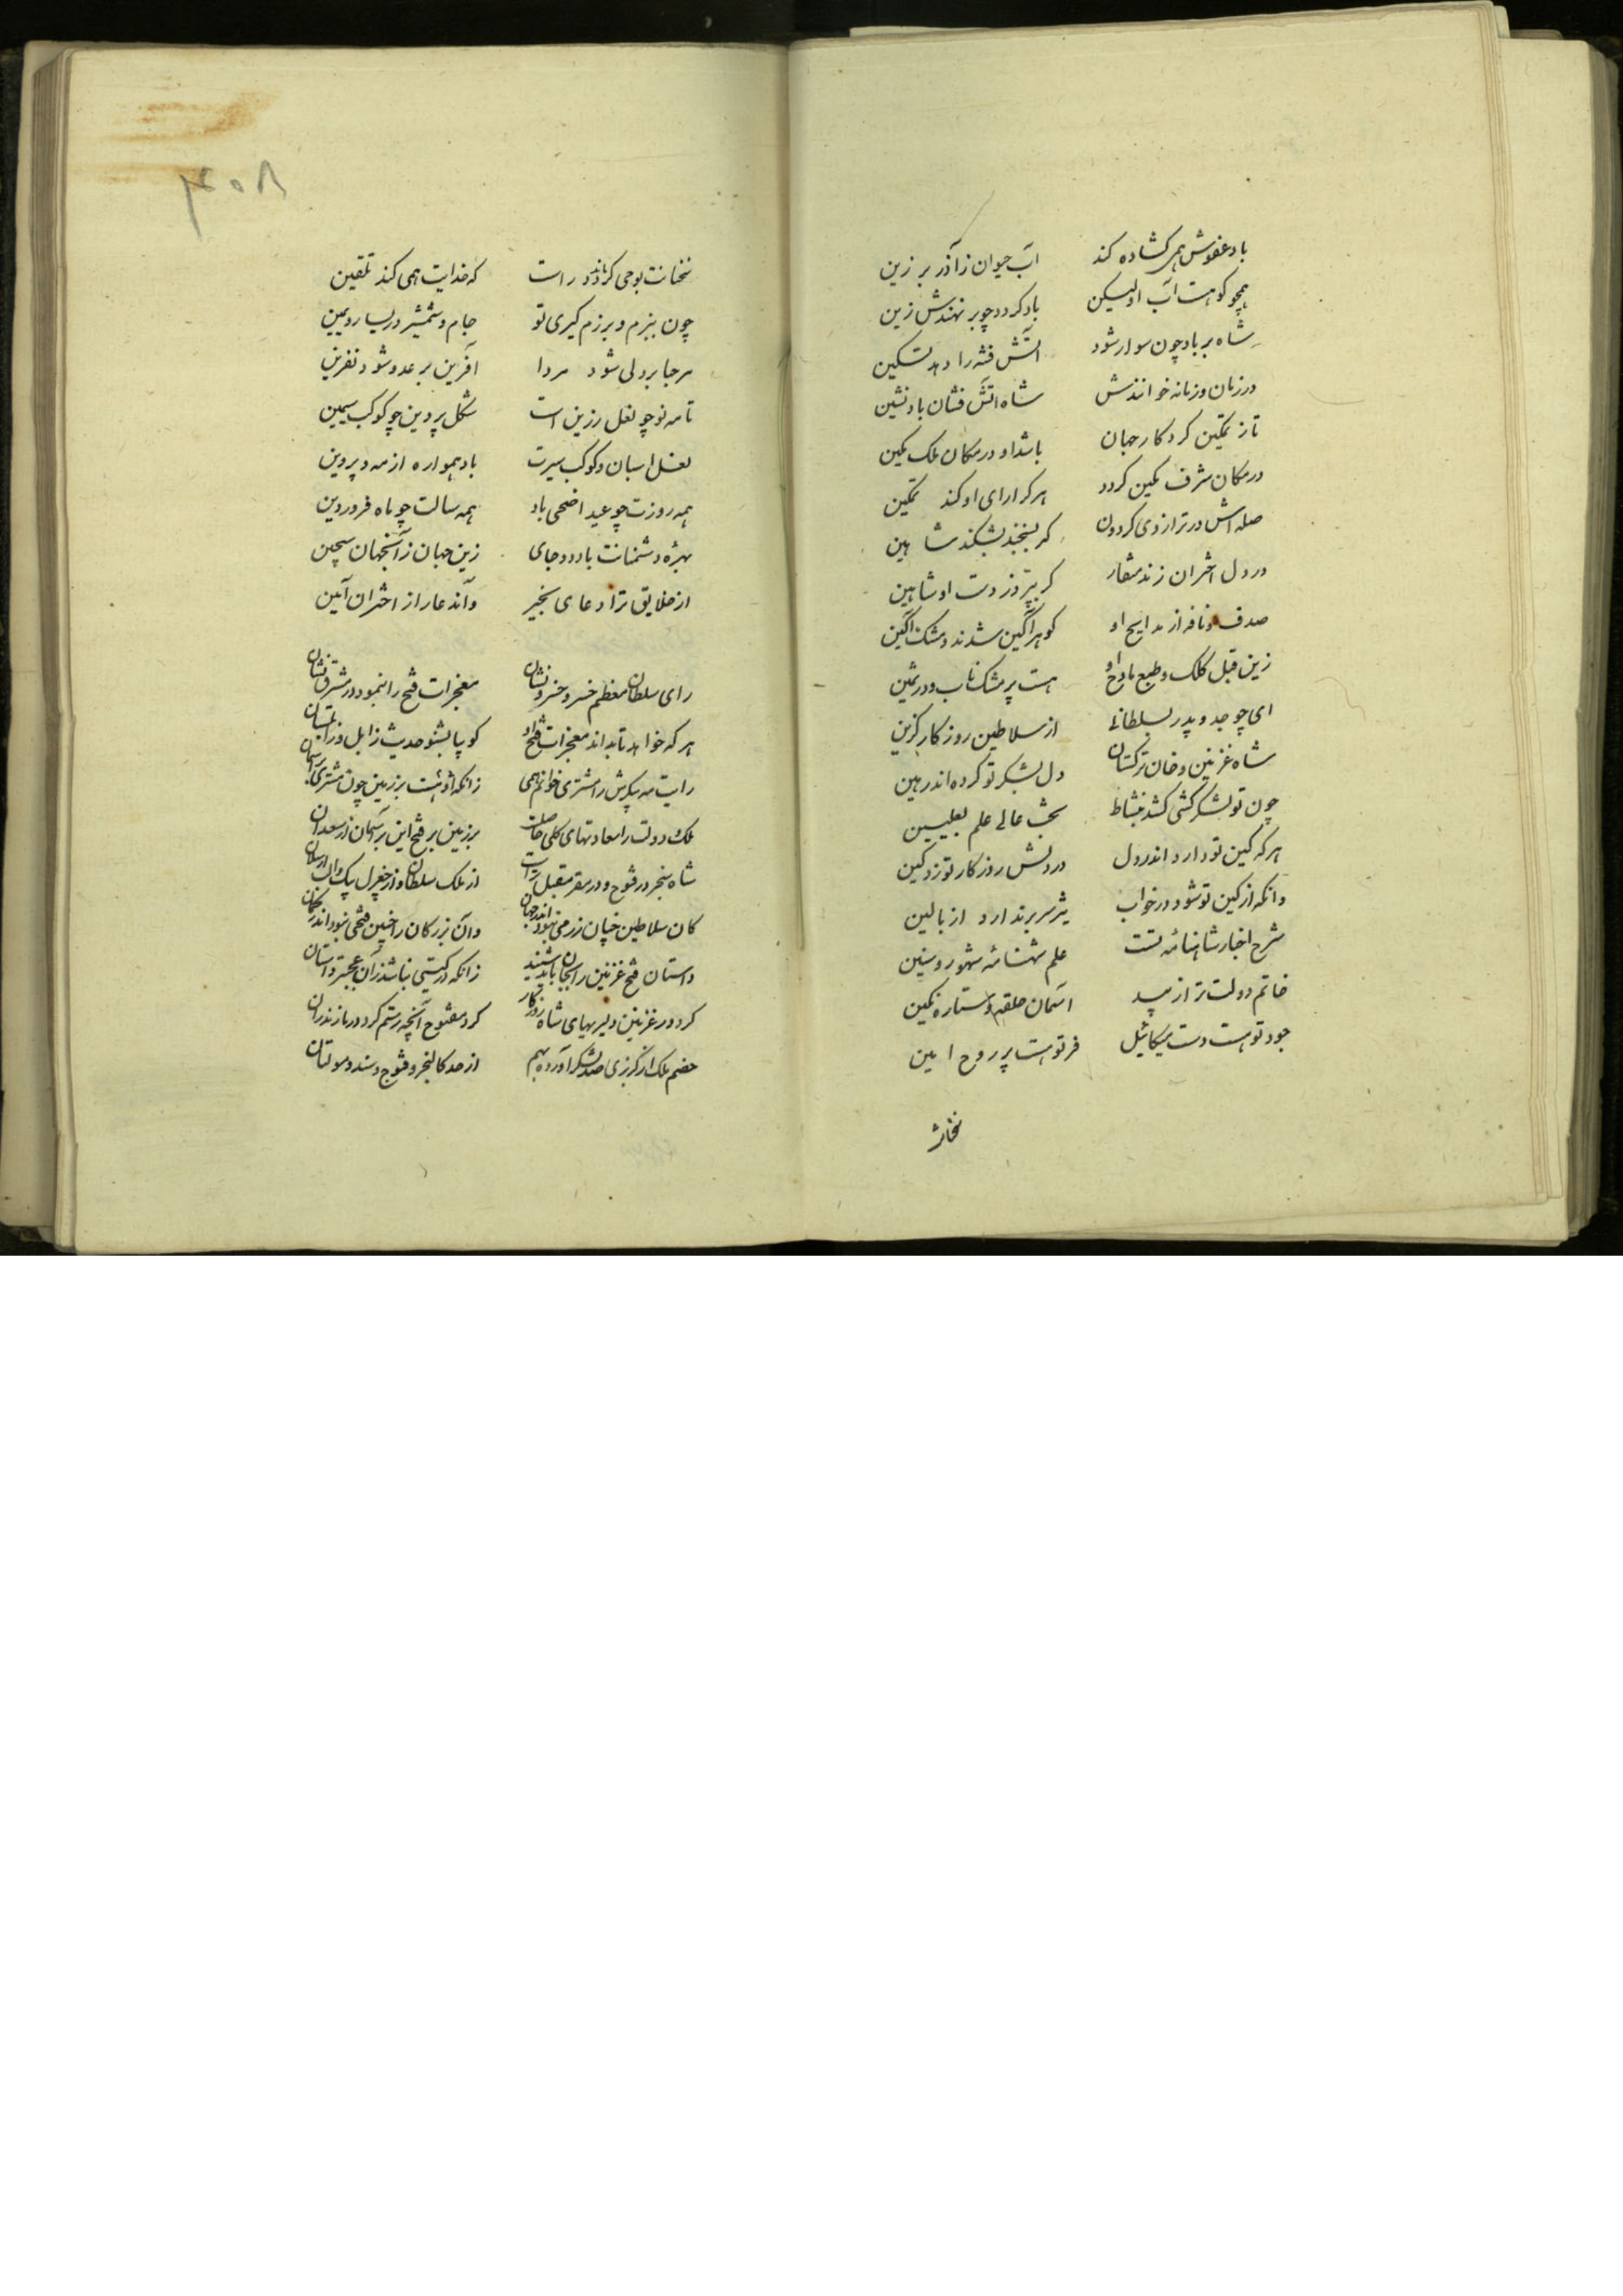 باد عفوش همی کشاده کند آب حیوان ز آذر بر زین
همچو کوهست آب او لیکن باد کردد چو بر نهندش زین
شاه بر باد چون سوار شود آتش فتنه را دهد تسکین
در زمان و زمانه خوانندش شاه آتش فشان باد نشین
تا ز تمکین کردکار جهان باشد او در مکان ملک مکین
در مکان شرف مکین کردد هر کرا رای او کند تمکین
صله اش در ترازوی کردون کر بسنجند بشکند شاهین
در دل اختران زند منقار کر بپرد ز دست او شاهین
صدف و نافه از مدایح او کوهر آکین شدند و مشک آکین
زین قبل کلک و طبع مادح او هست پر مشک ناب و در ثمین
ای چو جد و پدر بسلطانی از سلاطین روزکار کزین
شاه غزنین و خان ترکستان دل بشکر تو کرده اند رهین
چون تو لشکر کشی کشد بنشاط بخت عالی علم بعلیین
هر که کین تو دارد اندر دل در دلش روزکار توزد کین
وانکه از کین تو شود در خواب نیز سر برندارد از بالین
شرح اخبار شاهنامه تست علم شهنامه شهور و سنین
خاتم دولت ترا زیبد آسمان حلقه و ستاره نکین
جود تو هست دست میکائیل فر تو هست پر روح امین
سخنانت بوحی ماند راست که خدایت همی کند تلقین
چون ببزم و برزم کیری تو جام و شمشیر در یسار و یمین
مرحبا بر ولی شود مردا آفرین بر عدو شود نفرین
تا مه نو چو نعل زرین است شکل پروین چو کوکب سیمین
نعل اسبان و کوکب سیرت باد همواره از مه و پروین
همه روزت چو عید اضحی باد همه سالت چو ماه فروردین
بهره دشمنانت باد دو جای زین جهان زآنجهان سجین
از خلایق ترا دعای بخیر واندعا را از اختران آمین
رای سلطان معظم خسرو خسرو نشان معجزات فتح را بنمود در مشرق نشان
هر که خواهد تا بداند معجزات فتح او کو بیا بشنو حدیث زابل و زابلستان
رایت مه پیکرش را مشتری خوانم همی زانکه او هست بر زمین چون مشتری بر آسمان
ملک و دولت را سعادتهای کلی حاصلست بر زمین بر فتح این بر آسمان از سعد آن
شاه سنجر در فتوح و در سفر مقبل ترست از ملک سلطان و از جغرل بیک و الب ارسلان
کان سلاطین خیان زرمی نبود اندر جهان وآن بزرکان را چنین فتحی نبود اندر کمان
داستان فتح غزنین را بجان باید شنید زانکه در کیتی نباشد زآن عجبتر داستان
کرد در غزنین دلیریهای شاه روزکار کرد مفتوح آنچه رستم کرد در مازندران
خصم ملک از کربزی صد لشکر آورده بهم از حد کالنجر و قنوج و سند و مولتان
سخنانت
۴۵۸